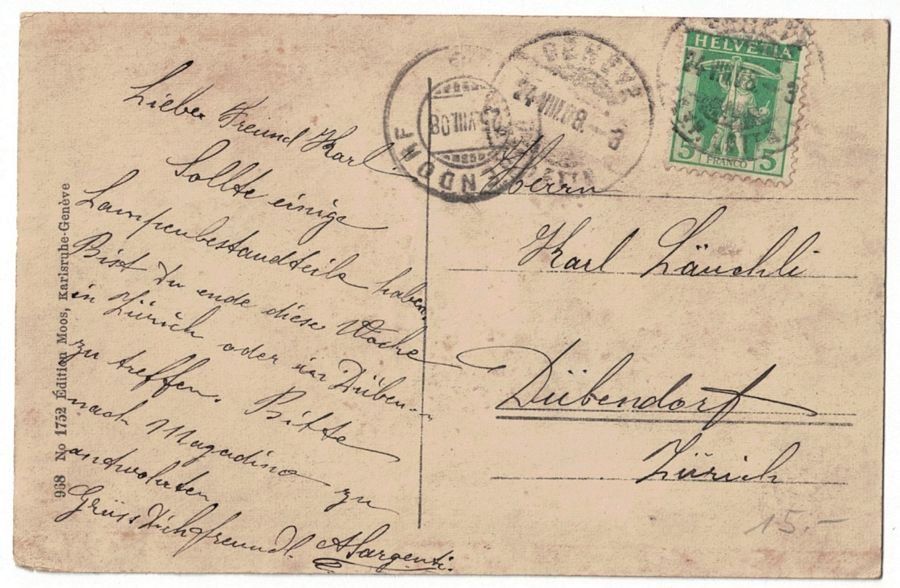 Lieber Freund Karl
Sollte einige
Lampenbestandteile haben.
Bist Du ende diese Woche
in Zürich oder in Düben-
zu treffen. Bitte
nach Magadino zu
antworten
Grüss Dich freundl. A Sargenti.
968 No 1752 Édition Moos, Karlsruhe-Genève
GENÈVE
24.VIII.08.
ENDORF
VIII.08
HELVETIA
5 FRANCO 5
24.VIII.08
Herrn
Karl Läuchli
Dübendorf
Zürich
15.-